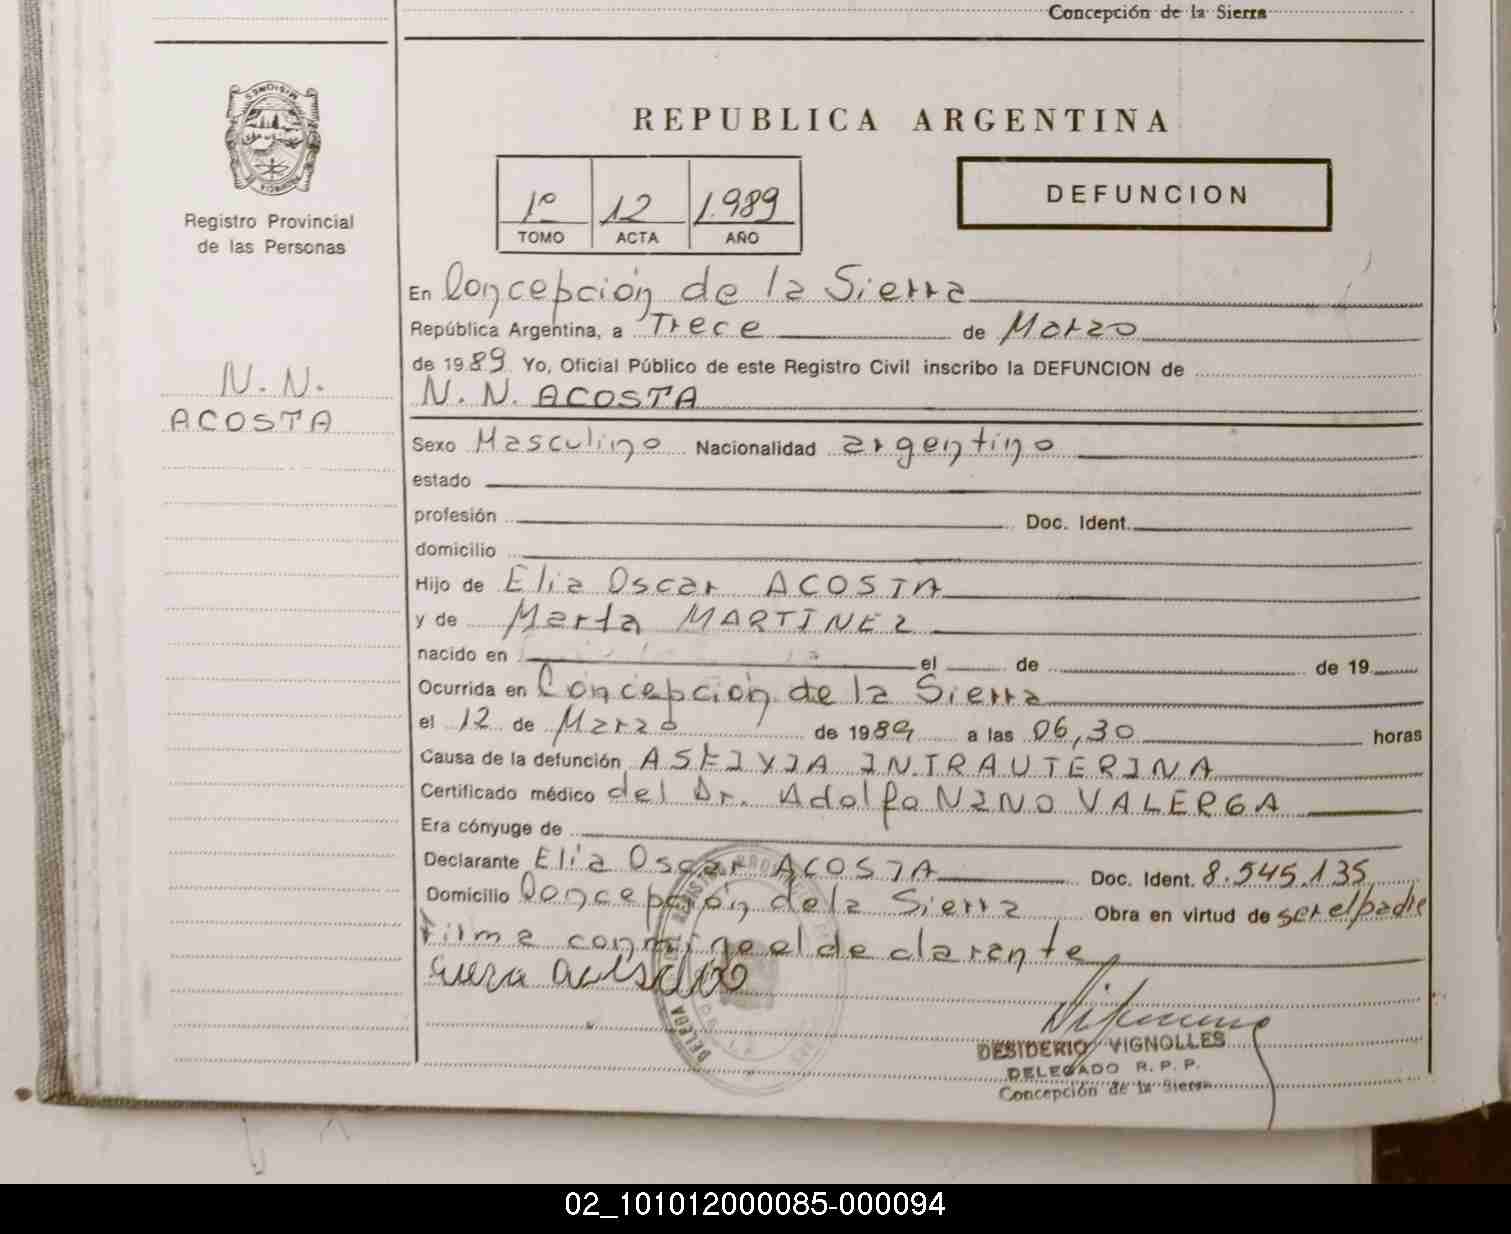 Concepción de la Sierra
MISIONES
Registro Provincial
de las Personas
REPUBLICA ARGENTINA
1º 12 1.989
TOMO ACTA AÑO
DEFUNCION
En Concepción de la Sierra
República Argentina, a Trece de Marzo
de 1989 Yo, Oficial Público de este Registro Civil inscribo la DEFUNCION de
N. N. ACOSTA
N. N.
ACOSTA
Sexo Masculino Nacionalidad argentino
estado
profesión Doc. Ident.
domicilio
Hijo de Elia Oscar ACOSTA
y de Marta MARTINEZ
nacido en el de de 19
Ocurrida en Concepción de la Sierra
el 12 de Marzo de 1989 a las 06,30 horas
Causa de la defunción INTRAUTERINA
Certificado médico del Dr. Adolfo NINO VALERGA
Era cónyuge de
Declarante Elia Oscar ACOSTA Doc. Ident. 8.545.135
Domicilio Concepción de la Sierra Obra en virtud de ser el padre
Firma conmigo el declarante
DESIDERIO VIGNOLLES
DELEGADO R. P. P.
Concepción de la Sierra
02_101012000085-000094